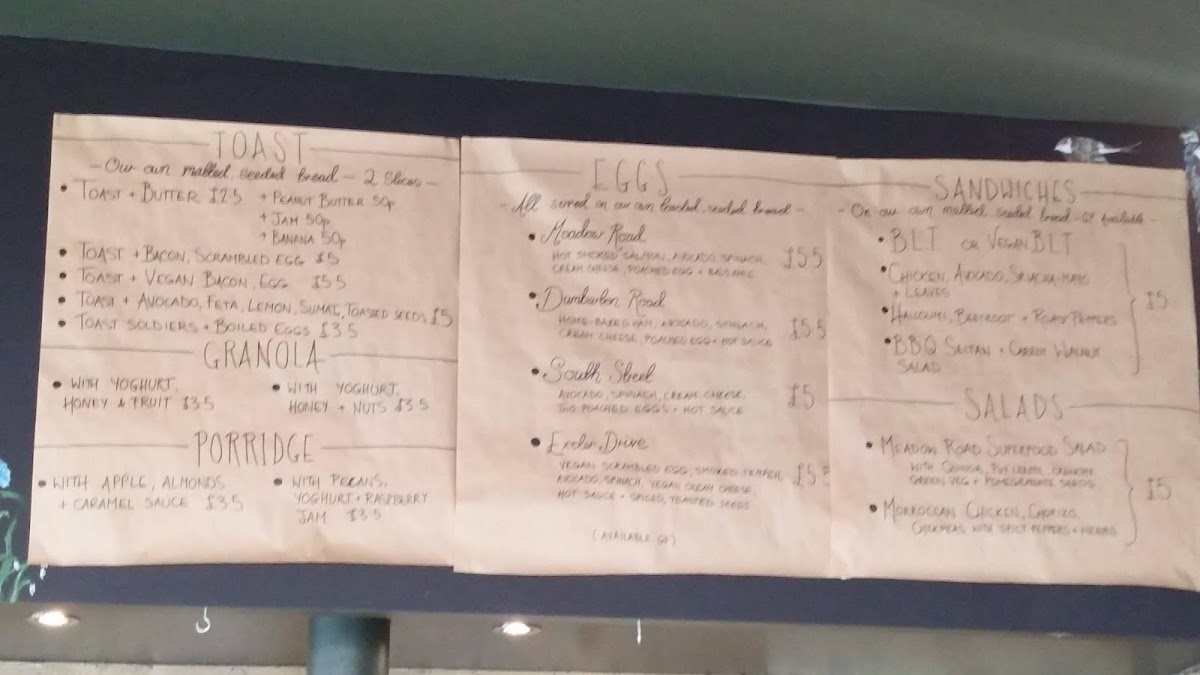 TOAST
- Our own malted, seeded bread - 2 Slices -
• TOAST + BUTTER £2.5 + PEANUT BUTTER 50p
+ JAM 50p
+ BANANA 50p
• TOAST + BACON, SCRAMBLED EGG £5
• TOAST + VEGAN BACON, EGG £5.5
• TOAST + AVOCADO, FETA, LEMON, SUMAC, TOASTED SEEDS £5
• TOAST SOLDIERS + BOILED EGGS £3.5
GRANOLA
• WITH YOGHURT,
HONEY & FRUIT £3.5
• WITH YOGHURT,
HONEY + NUTS £3.5
PORRIDGE
• WITH APPLE, ALMONDS
+ CARAMEL SAUCE £3.5
• WITH PECANS,
YOGHURT + RASPBERRY
JAM £3.5
EGGS
- All served on our own toasted, seeded bread -
• Meadow Road £5.5
HOT SMOKED SALMON, AVOCADO, SPINACH,
CREAM CHEESE, POACHED EGG + BALSAMIC
• Dumbarton Road
HOME-BAKED HAM, AVOCADO, SPINACH, £5.5
CREAM CHEESE, POACHED EGG + HOT SAUCE
• South Street
AVOCADO, SPINACH, CREAM CHEESE, £5
TWO POACHED EGGS + HOT SAUCE
• Exeter Drive
VEGAN SCRAMBLED EGG, SMOKED TEMPEH, £5.5
AVOCADO, SPINACH, VEGAN CREAM CHEESE,
HOT SAUCE + SPICED, TOASTED SEEDS
(AVAILABLE GF)
SANDWICHES
- On our own malted seeded bread - GF Available -
• BLT OR VEGAN BLT
• CHICKEN, AVOCADO, SRIRACHA-MAYO
+ LEAVES
£5
• HALLOUMI, BEETROOT + ROAST PEPPERS
• BBQ SEITAN + CARROT WALNUT
SALAD
SALADS
• MEADOW ROAD SUPERFOOD SALAD
WITH QUINOA, PUY LENTIL,
GREEN VEG + POMEGRANATE SEEDS
£5
• MORROCCAN CHICKEN, CHORIZO,
CHICKPEAS WITH SPICY PEPPERS + HERBS